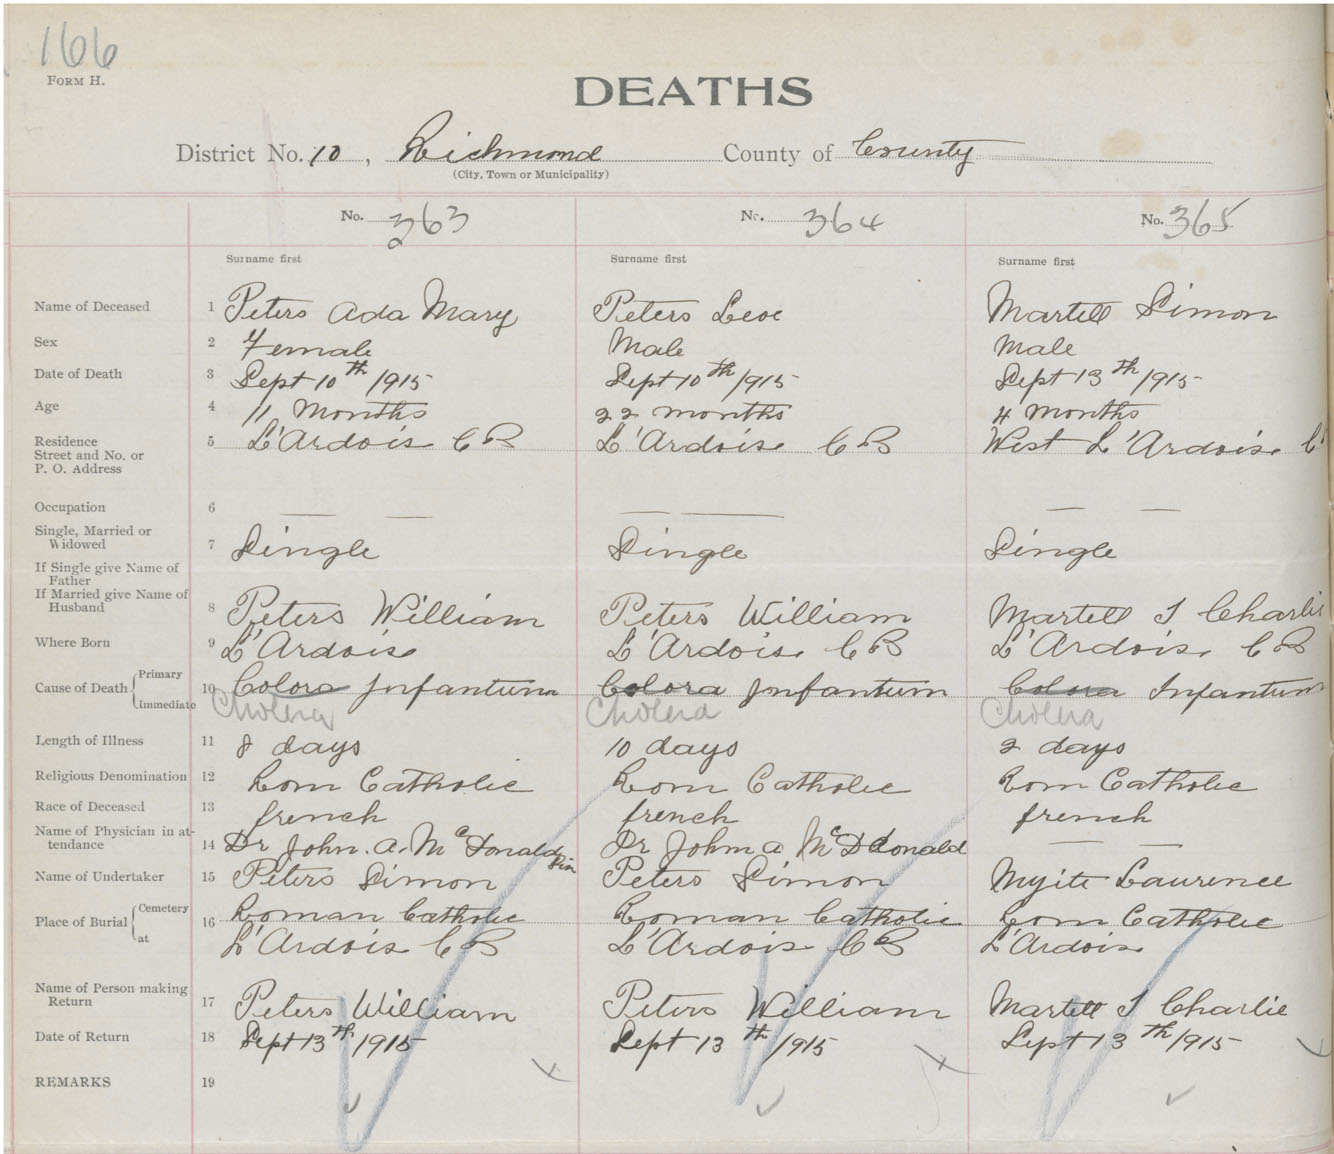 166
FORM H.
DEATHS
District No. 10, Richmond County of County
(City, Town or Municipality)
No. 363 No. 364 No. 365
Surname first Surname first Surname first
Name of Deceased 1 Peters Ada Mary Peters Leoe Martell Simon
Sex 2 Female Male Male
Date of Death 3 Sept 10th/1915 Sept 10th/1915 Sept 13th/1915
Age 4 11 Months 22 months 4 months
Residence 5 L'Ardois C B L'Ardois C B West L'Ardois C
Street and No. or
P. O. Address
Occupation 6 — — — — — —
Single, Married or
Widowed 7 Single Single Single
If Single give Name of
Father
If Married give Name of
Husband 8 Peters William Peters William Martell S Charlie
Where Born 9 L'Ardois L'Ardois C B L'Ardois C B
Cause of Death { Primary
Immediate 10 Colora Infantum Colora Infantum Colora Infantum
Cholera Cholera Cholera
Length of Illness 11 8 days 10 days 2 days
Religious Denomination 12 Rom Catholic Rom Catholic Rom Catholic
Race of Deceased 13 french french french
Name of Physician in at-
tendance 14 Dr John. A. McDonald Dr John A McDdonald — —
Name of Undertaker 15 Peters Simon Peters Simon Myite Laurence
Place of Burial { Cemetery 16 Roman Catholic Roman Catholic Rom Catholic
at L'Ardois C B L'Ardois C B L'Ardois
Name of Person making
Return 17 Peters William Peters William Martell S Charlie
Date of Return 18 Sept 13th/1915 Sept 13th/1915 Sept 13th/1915
REMARKS 19